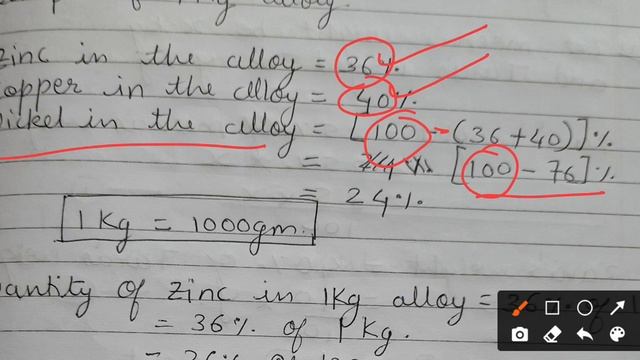 alloy.
zinc in the alloy = 36%.
opper in the alloy = 40%
ickel in the alloy = [100 - (36+40)]%
= [100 - 76]%
= 24%.
1 Kg = 1000gm.
antity of zinc in 1Kg alloy = 36%
= 36% of 1 Kg.